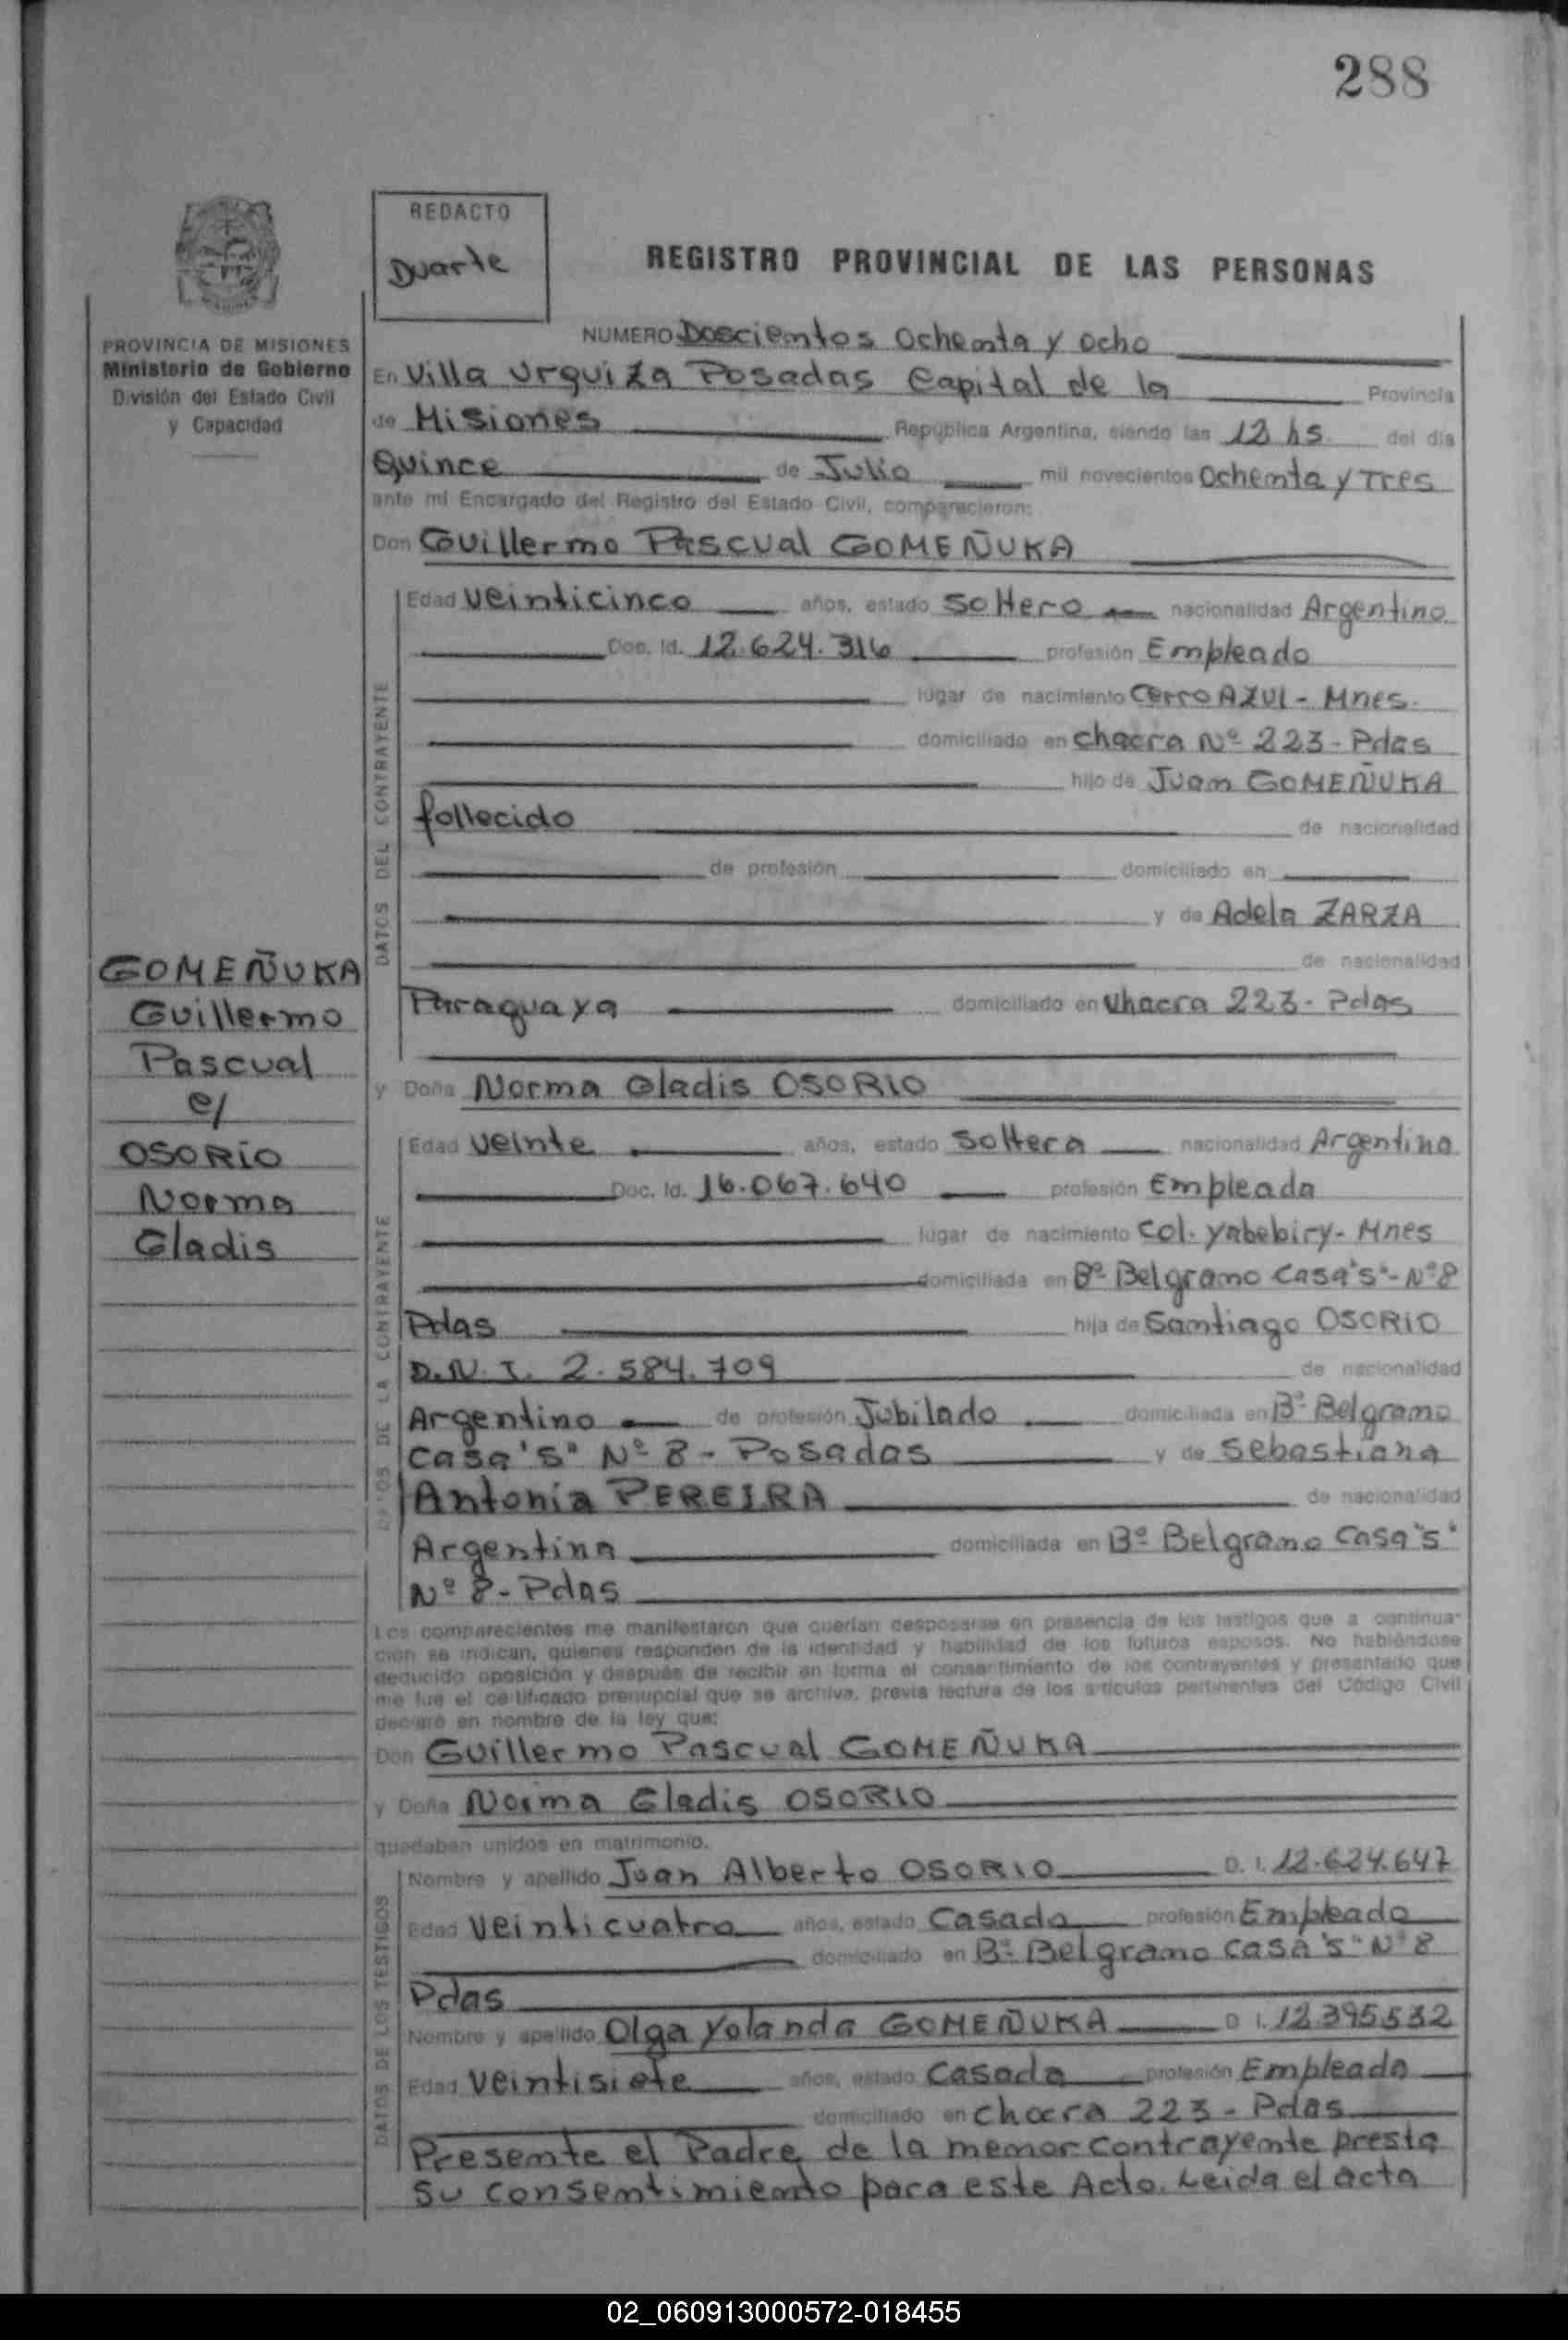 288
REDACTO
Duarte
REGISTRO PROVINCIAL DE LAS PERSONAS
PROVINCIA DE MISIONES
Ministerio de Gobierno
División del Estado Civil
y Capacidad
NUMERO Doscientos Ochenta y ocho
En Villa Urquiza Posadas Capital de la Provincia
de Misiones República Argentina, siendo las 12 hs del día
Quince de Julio mil novecientos Ochenta y Tres
ante mi Encargado del Registro del Estado Civil, comparecieron:
Don Guillermo Pascual GOMEÑUKA
DATOS DEL CONTRAYENTE
Edad Veinticinco años, estado Soltero nacionalidad Argentino
Doc. Id. 12.624.316 profesión Empleado
lugar de nacimiento Cerro AZUL - Mnes.
domiciliado en chacra Nº 223 - Pdas
hijo de Juan GOMEÑUKA
fallecido de nacionalidad
de profesión domiciliado en
y de Adela ZARZA
de nacionalidad
Paraguaya domiciliado en chacra 223 - Pdas
GOMEÑUKA
Guillermo
Pascual
c/
OSORIO
Norma
Gladis
y Doña Norma Gladis OSORIO
DATOS DE LA CONTRAYENTE
Edad Veinte años, estado Soltera nacionalidad Argentina
Doc. Id. 16.067.640 profesión Empleada
lugar de nacimiento Col. Yabebiry - Mnes
domiciliada en Bº Belgrano Casa "S" - Nº 8
Pdas hija de Santiago OSORIO
D.N.I. 2.584.709 de nacionalidad
Argentino de profesión Jubilado domiciliada en Bº Belgrano
Casa "S" Nº 8 - Posadas y de Sebastiana
Antonia PEREIRA de nacionalidad
Argentina domiciliada en Bº Belgrano Casa "S"
Nº 8 - Pdas
Los comparecientes me manifestaron que querían desposarse en presencia de los testigos que a continua-
ción se indican, quienes responden de la identidad y habilidad de los futuros esposos. No habiéndose
deducido oposición y después de recibir en forma el consentimiento de los contrayentes y presentado que
me fue el certificado prenupcial que se archiva, previa lectura de los artículos pertinentes del Código Civil
declaro en nombre de la ley que:
Don Guillermo Pascual GOMEÑUKA
y Doña Norma Gladis OSORIO
quedaban unidos en matrimonio.
DATOS DE LOS TESTIGOS
Nombre y apellido Juan Alberto OSORIO D. I. 12.624.647
Edad Veinticuatro años, estado Casado profesión Empleado
domiciliado en Bº Belgrano Casa "S" Nº 8
Pdas
Nombre y apellido Olga Yolanda GOMEÑUKA D. I. 12.395.532
Edad Veintisiete años, estado Casada profesión Empleada
domiciliado en chacra 223 - Pdas
Presente el Padre de la menor contrayente presta
su consentimiento para este Acto. Leida el acta
02_060913000572-018455